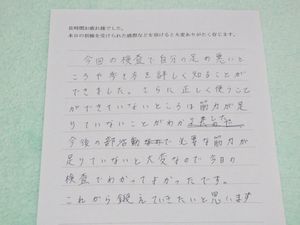 長時間お疲れ様でした。
本日の指極を受けられた感想などを頂けると大変ありがたく存じます。
今回の検査で自分の足の悪いと
ころや歩き方を詳しく知ることが
できました。さらに正しく使うこと
ができていないところは筋力が足
りていないことがわかりました。
今後の部活動などで必要な筋力が
足りていないと大変なので今日の
検査でわかってよかったです。
これから鍛えていきたいと思います